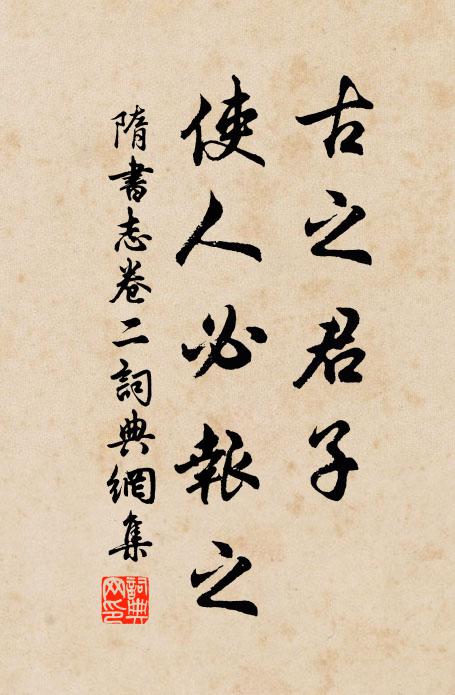 古之君子
使人必報之
隋書志卷二詞典網集
詞典網印